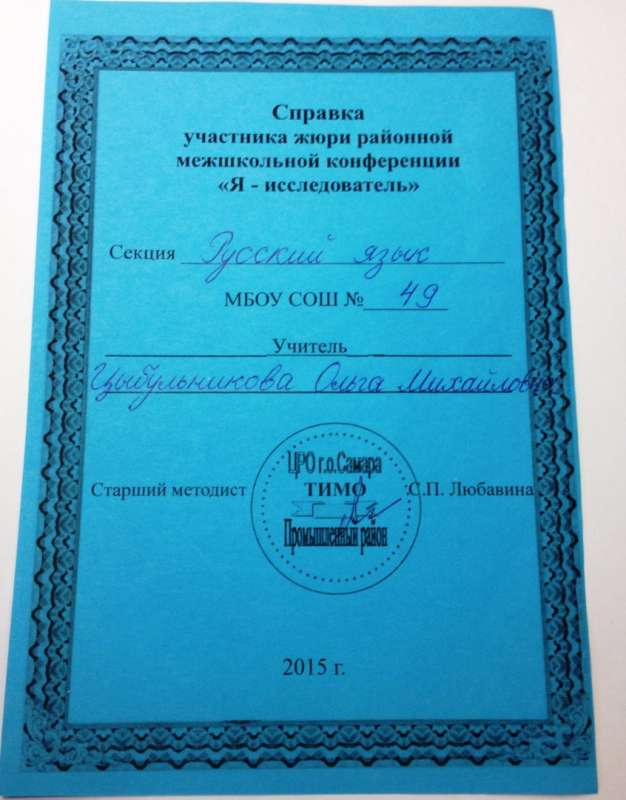 Справка
участника жюри районной
межшкольной конференции
«Я - исследователь»
Секция Русский язык
МБОУ СОШ № 49
Учитель
Цыбульникова Ольга Михайловна
ЦРО г.о.Самара
Старший методист ТИМО С.П. Любавина
Промышленный район
2015 г.